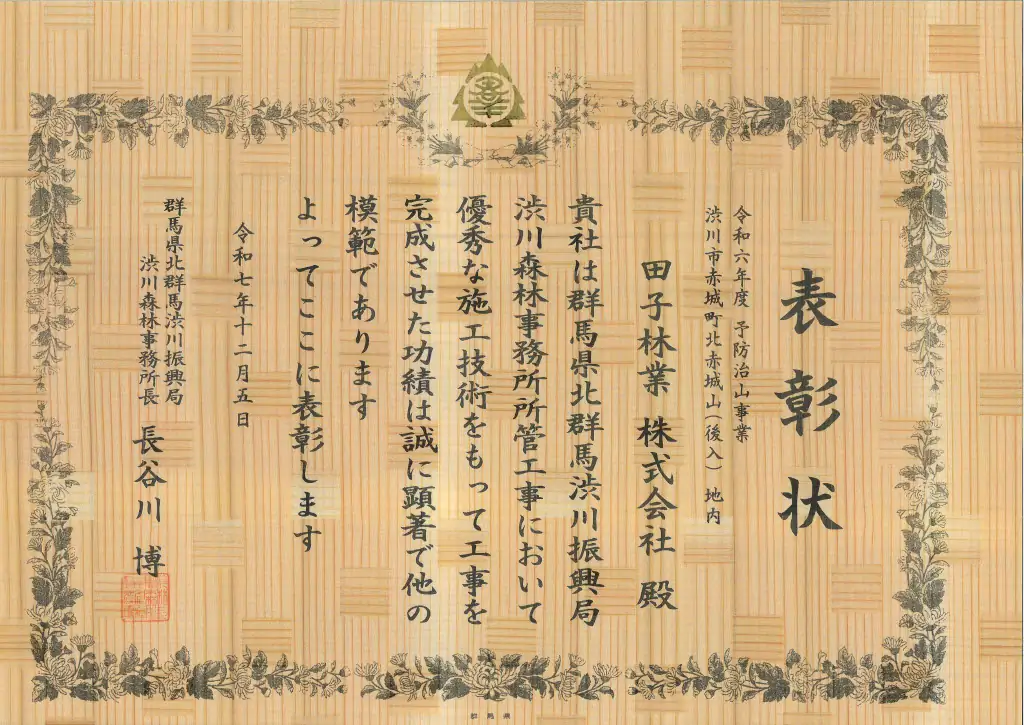 表彰状
令和六年度 予防治山事業
渋川市赤城町北赤城山(後入) 地内
田子林業 株式会社 殿
貴社は群馬県北群馬渋川振興局
渋川森林事務所所管工事において
優秀な施工技術をもって工事を
完成させた功績は誠に顕著で他の
模範であります
よってここに表彰します
令和七年十二月五日
群馬県北群馬渋川振興局
渋川森林事務所長 長谷川 博